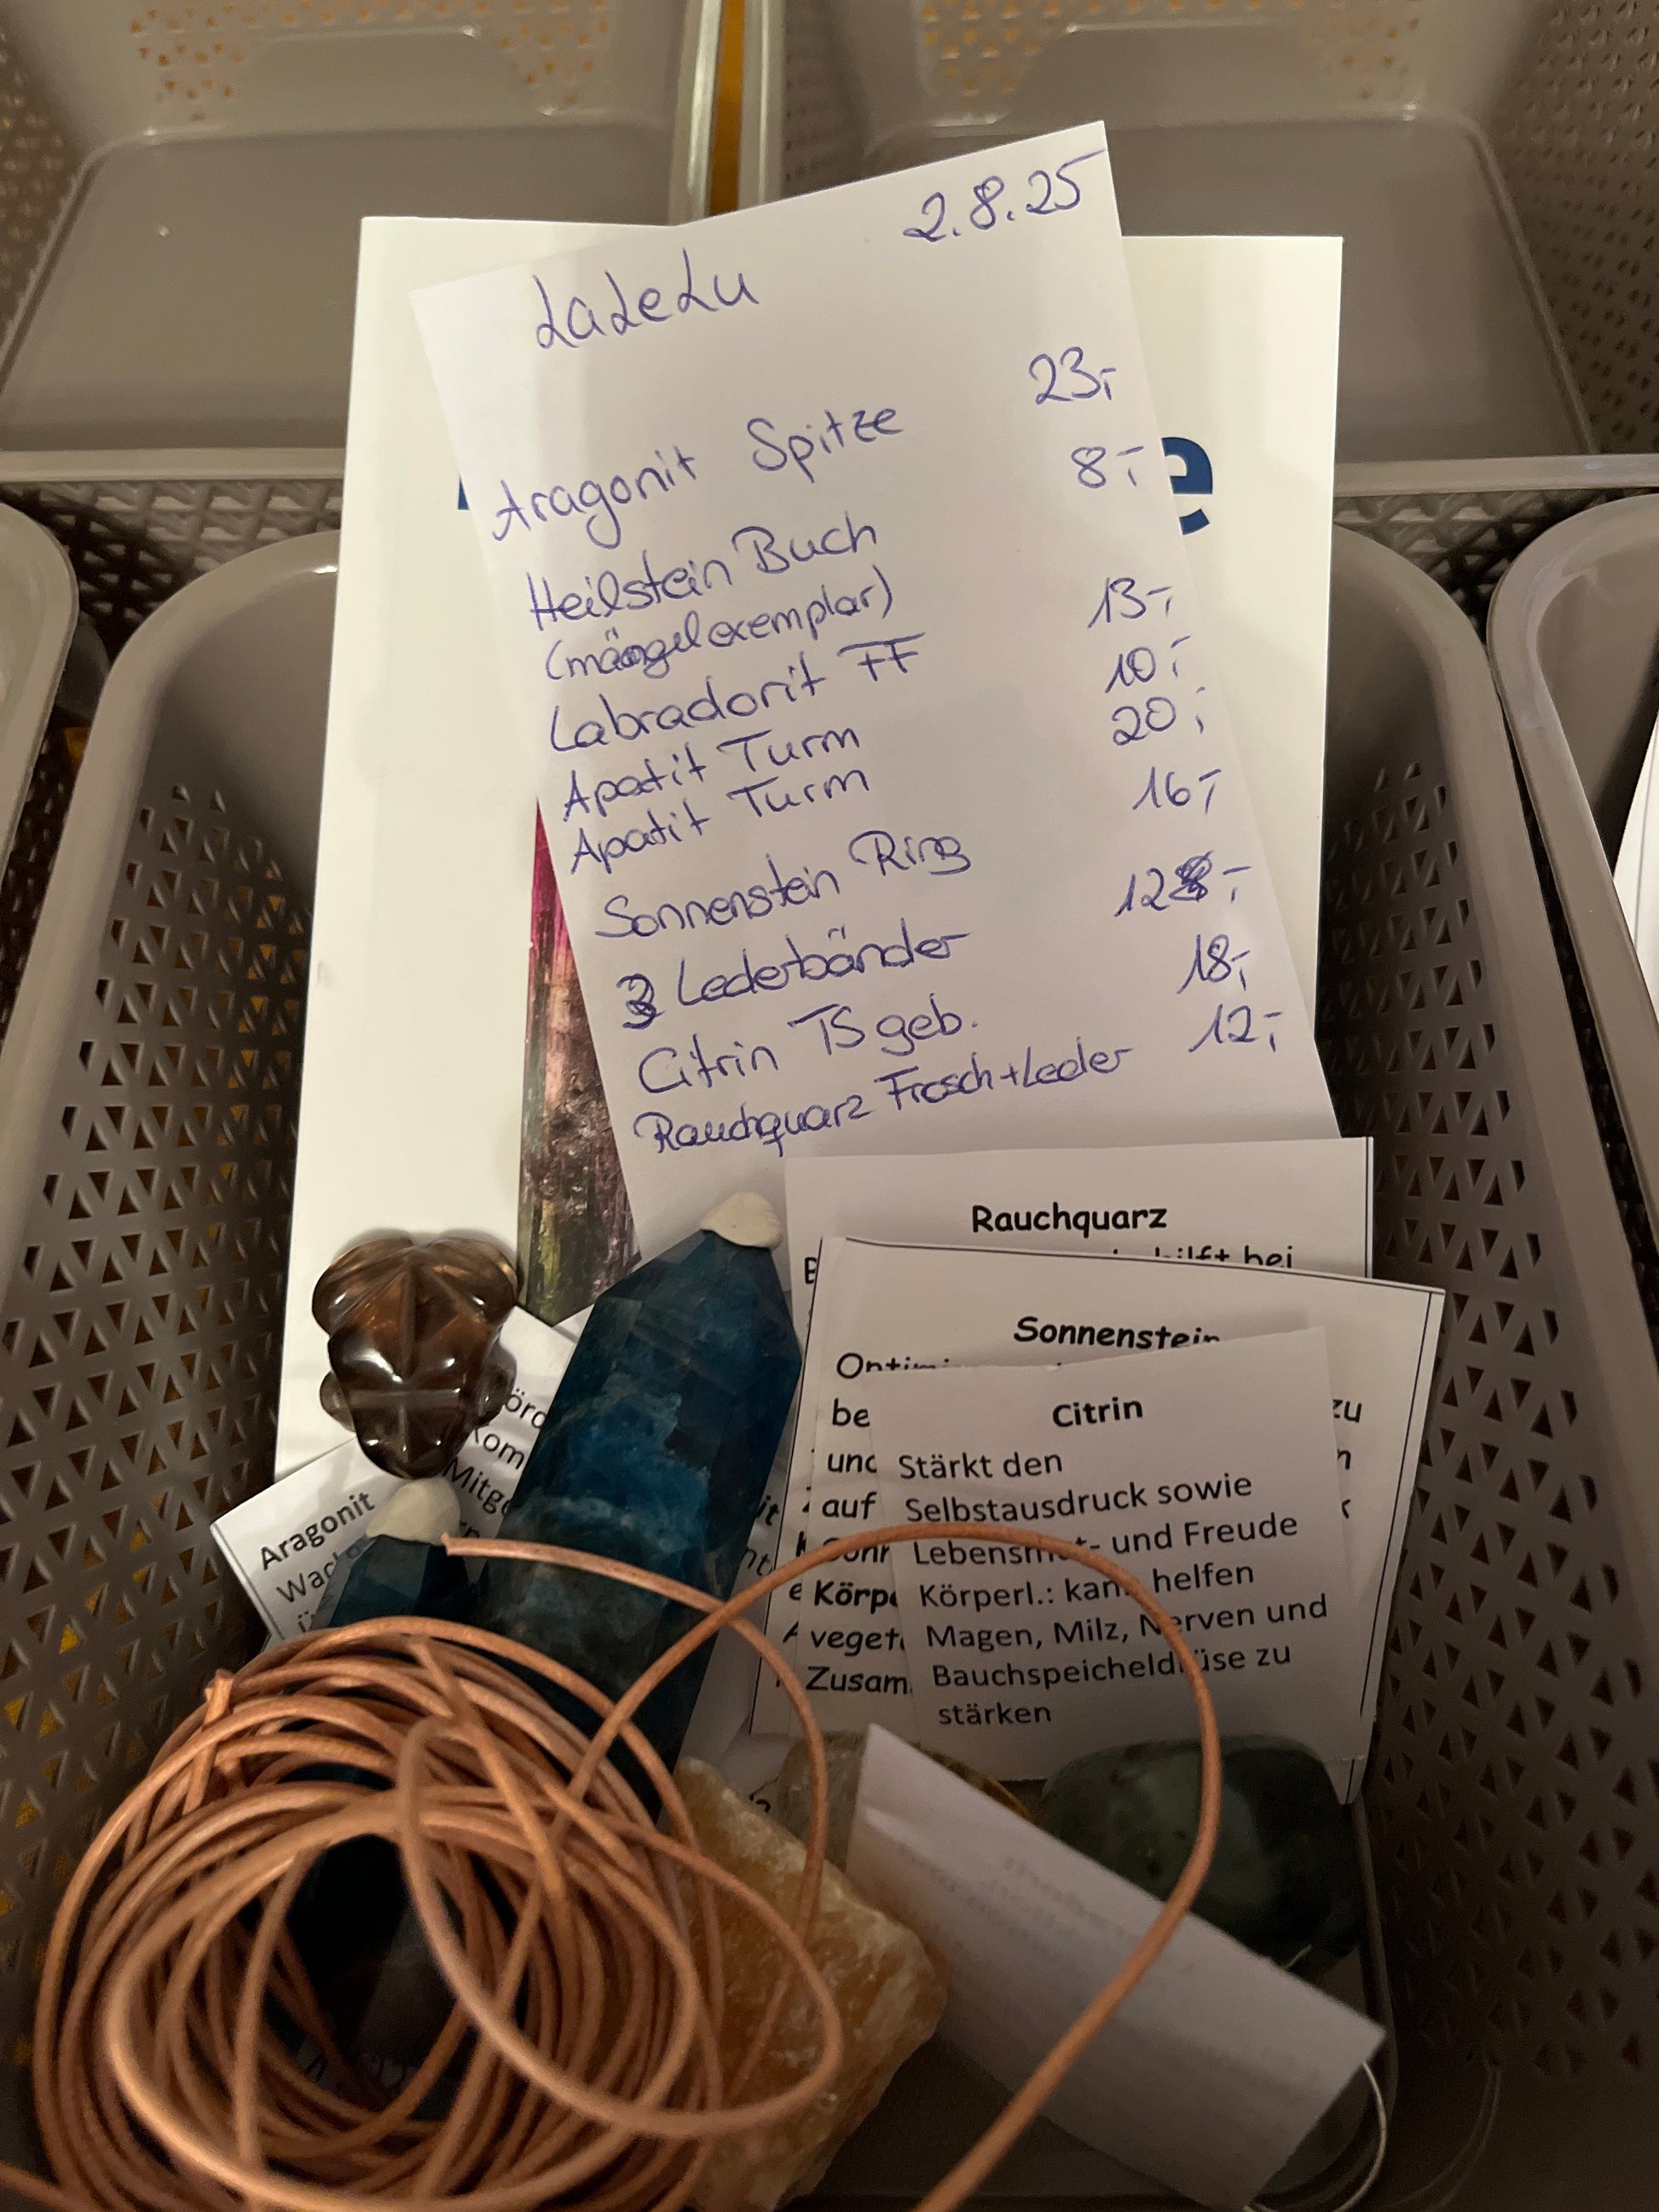 2.8.25
LaLeLu
Aragonit Spitze 23,-
Heilstein Buch 8,-
(mängelexemplar)
Labradorit FF 13,-
Apatit Turm 10,-
Apatit Turm 20,-
Sonnenstein Ring 16,-
3 Lederbänder 12,-
Citrin TS geb. 18,-
Rauchquarz Frosch+Leder 12,-
e
Rauchquarz
hilft bei
Sonnenstein
be zu
und
auf
Körpe
veget
Zusam
Citrin
Stärkt den
Selbstausdruck sowie
Lebensmut- und Freude
Körperl.: kann helfen
Magen, Milz, Nerven und
Bauchspeicheldrüse zu
stärken
Aragonit